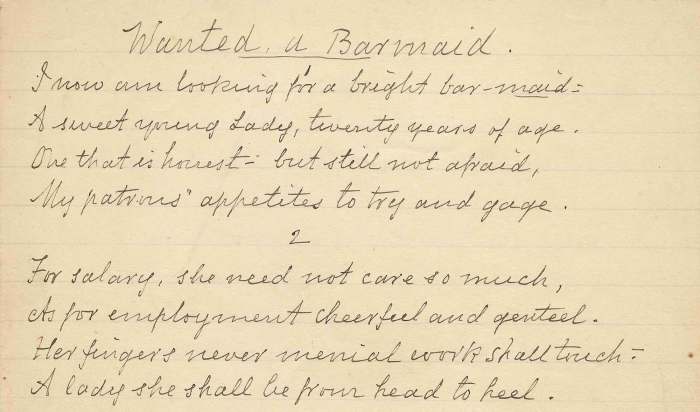 Wanted, a Barmaid.
1
I now am looking for a bright bar-maid-
A sweet young Lady, twenty years of age.
One that is honest- but still not afraid,
My patrons' appetites to try and gage.
2
For salary, she need not care so much,
As for employment cheerful and genteel.
Her fingers never menial work shall touch-
A lady she shall be from head to heel.